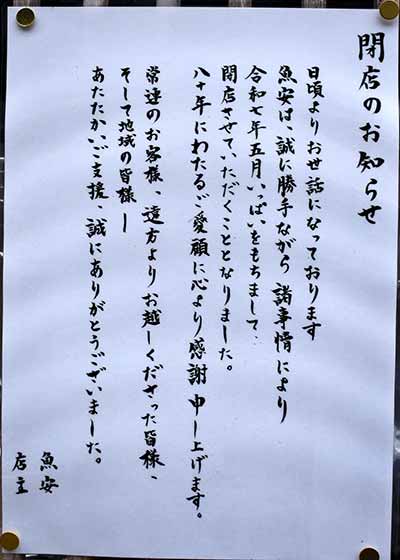 閉店のお知らせ
日頃よりお世話になっております
魚安は、誠に勝手ながら諸事情により
令和七年五月いっぱいをもちまして、
閉店させていただくこととなりました。
八十年にわたるご愛顧に心より感謝申し上げます。
常連のお客様、遠方よりお越しくださった皆様、
そして地域の皆様ー
あたたかいご支援、誠にありがとうございました。
魚安
店主